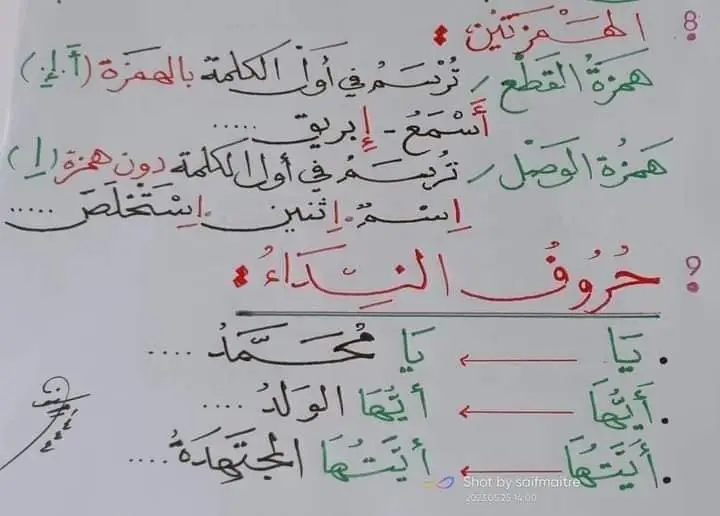 8 الهَمْزَتَيْنِ :
هَمْزَةُ القَطْعِ / تُرْسَمُ في أَوَّلْ الكلمة بالهمزة (أَ. إِ)
أَسْمَعُ - إِبريق .....
هَمْزَةُ الوَصْلِ / تُرْسَمُ في أول الكلمة دون همزة (اِ)
اِسْمٌ. اِثنين. اِسْتَخْلَصَ .....
9 حُرُوفُ النِّدَاءُ :
. يَا ← يَا مُحَمَّدُ ....
. أَيُّهَا ← أَيُّهَا الوَلَدُ ....
. أَيَّتُهَا ← أَيَّتُهَا المجتَهِدَةُ ....
Shot by saifmaitre
2023.05.25 14:00